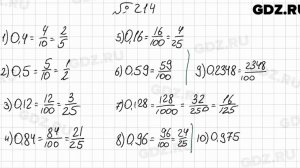 GDZ.RU
№ 214
1) 0,4 = 4/10 = 2/5
2) 0,5 = 5/10 = 1/2
3) 0,12 = 12/100 = 3/25
4) 0,84 = 84/100 = 21/25
5) 0,16 = 16/100 = 4/25
6) 0,59 = 59/100
7) 0,128 = 128/1000 = 32/250 = 16/125
8) 0,96 = 96/100 = 24/25
9) 0,2348 = 2348/100
10) 0,375
GDZ.RU